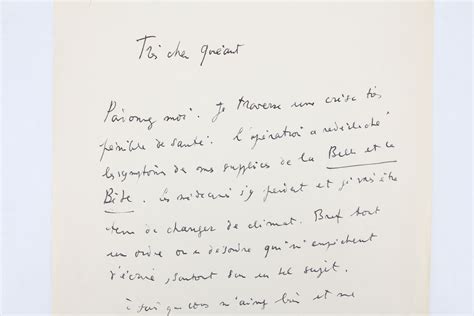 Très cher Quéant
Pardonnez moi. Je traverse une crise très
pénible de santé. L'opération a redéclenché
les symptômes de mes supplices de la Belle et la
Bête. Les médecins s'y perdent et je vais être
tenu de changer de climat. Bref tout
un ordre ou désordre qui m'empêchent
d'écrire, surtout sur un tel sujet.
Je sais que vous m'aimez bien et me